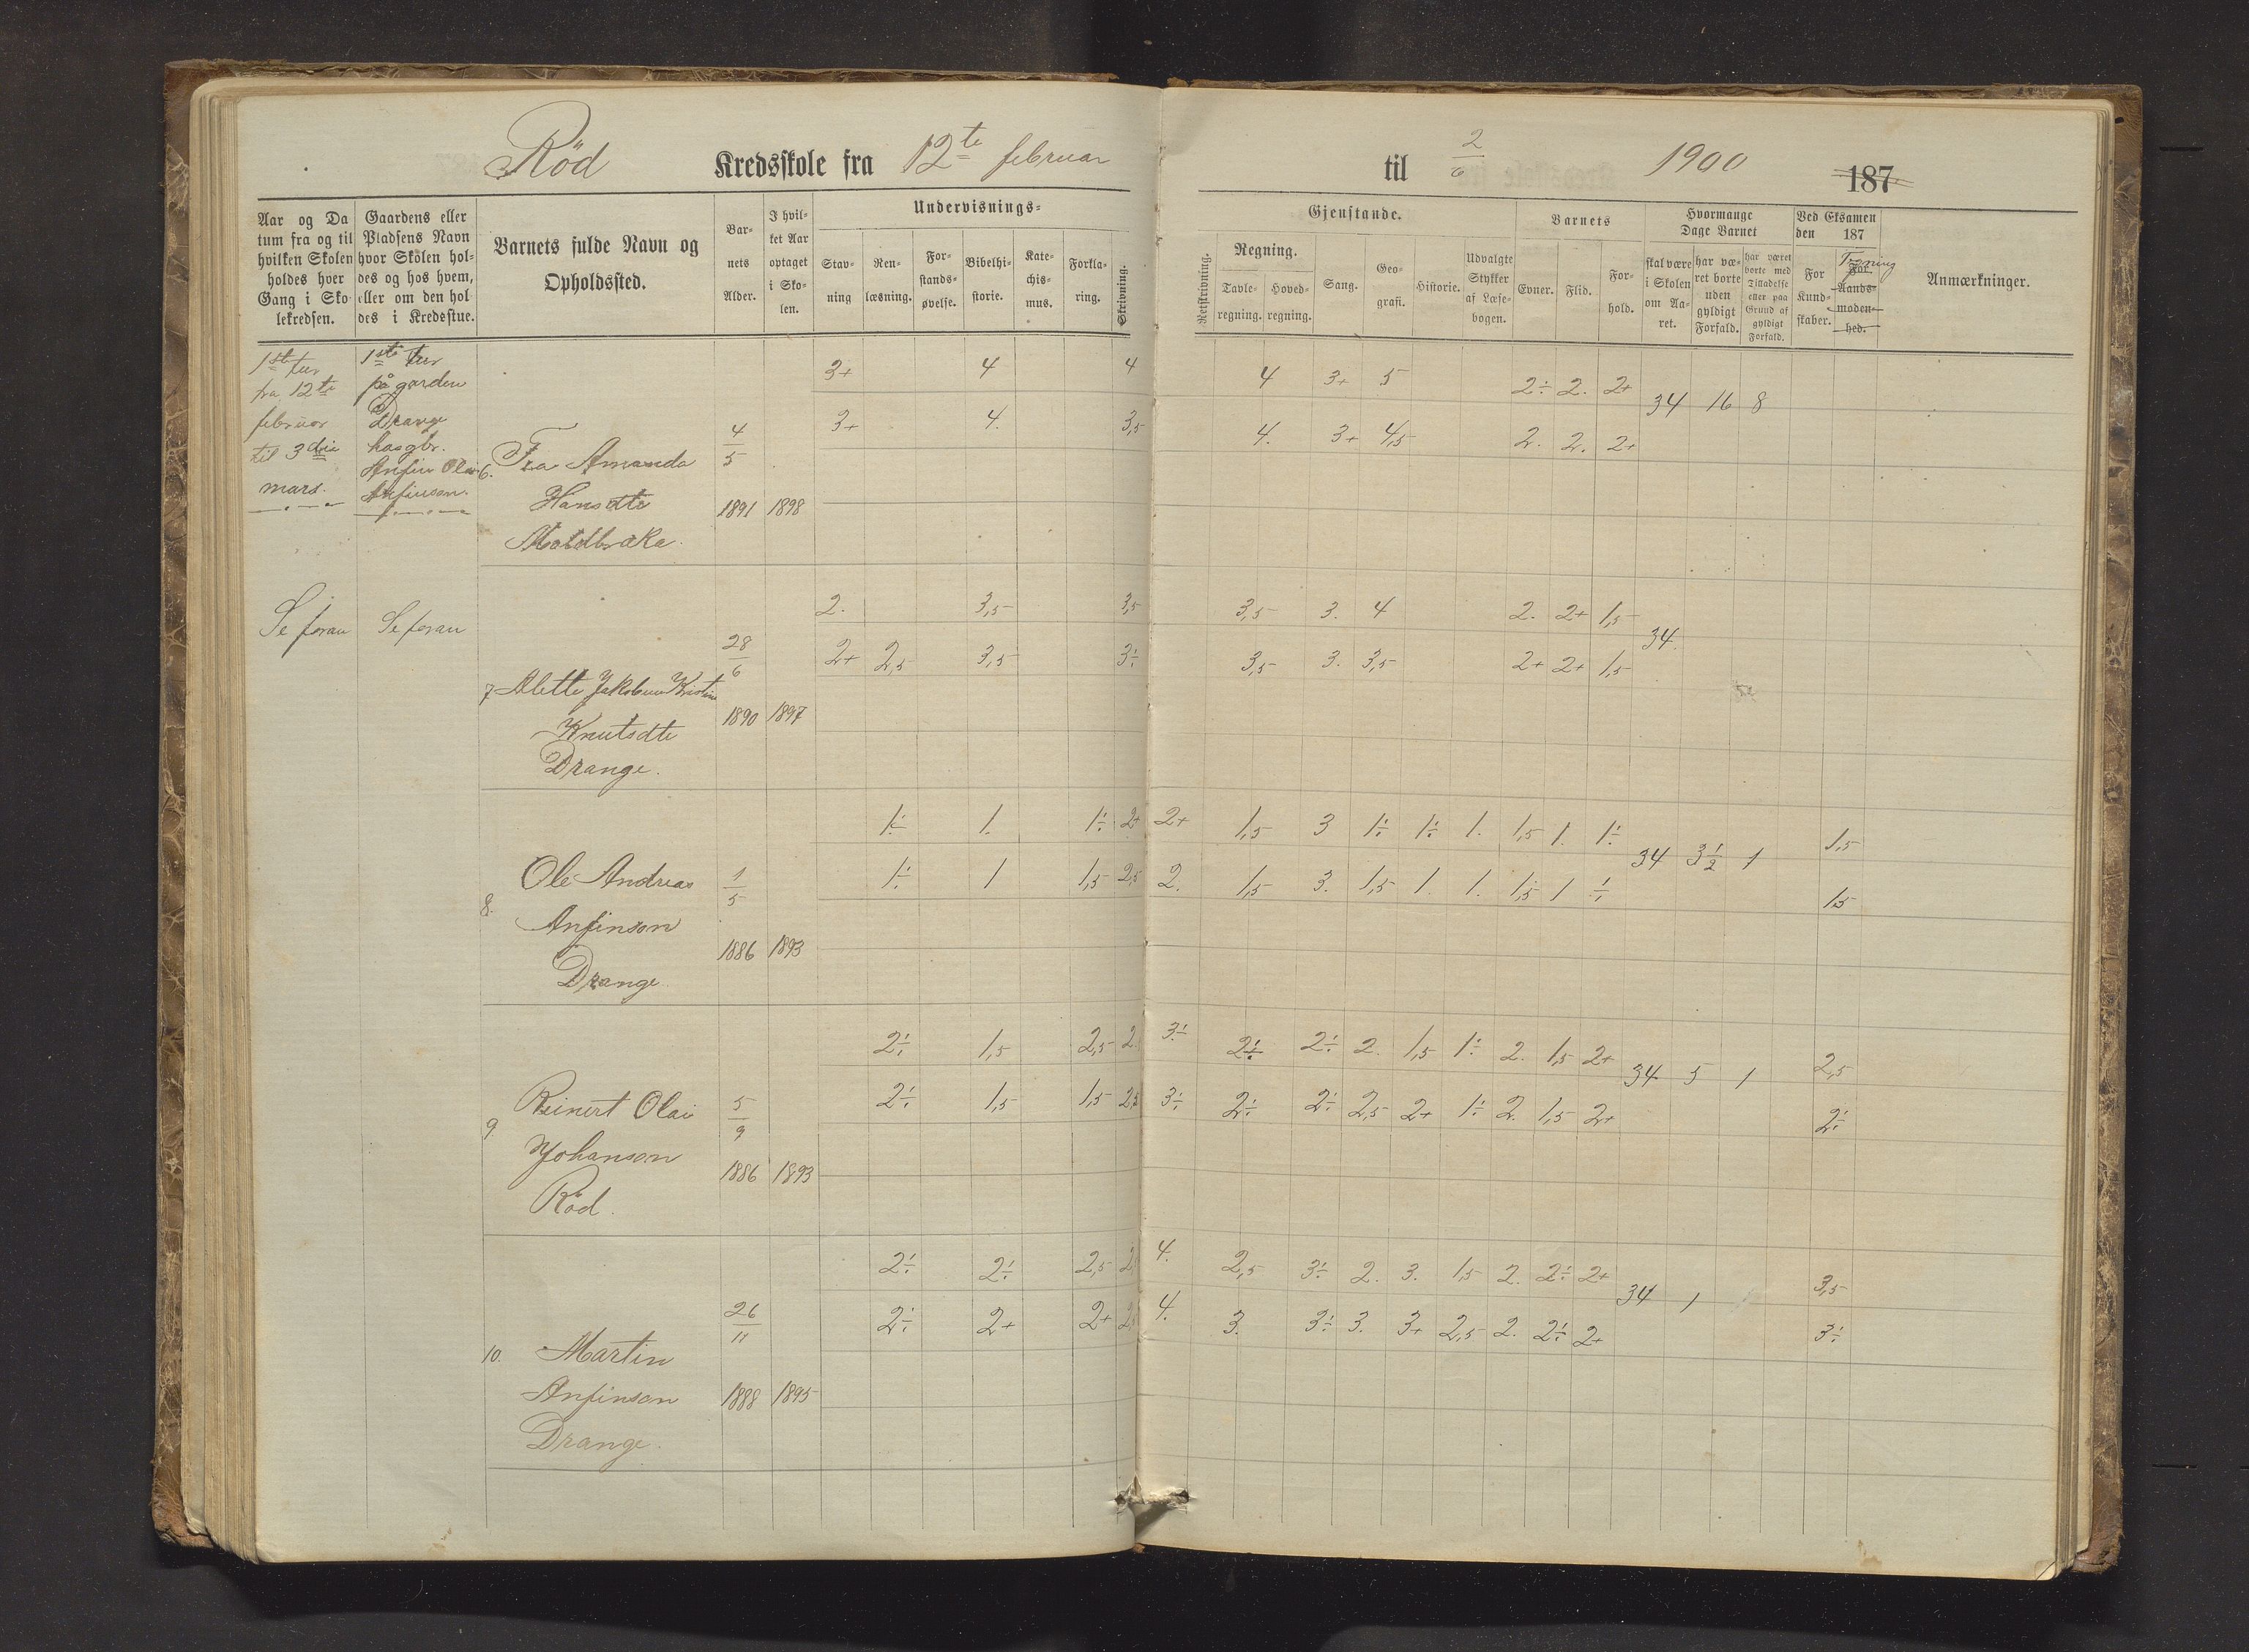 Röd Kredsskole fra 12te februar
til 2/6 1900 187
Aar og Da
tum fra og til
hvilken Skolen
holdes hver
Gang i Sko-
lekredsen.
Gaardens eller
Pladsens Navn
hvor Skolen hol-
des og hos hvem,
eller om den hol
des i Kredsstue.
Barnets fulde Navn og
Opholdssted.
Bar-
nets
Alder.
I hvil-
ket Aar
optaget
i Sko-
len.
Undervisnings-
Stav-
ning
Ren-
læsning.
For-
stands-
øvelse.
Bibelhi-
storie.
Kate-
chis-
mus.
Forkla-
ring.
Skrivning.
Gjenstande.
Retskrivning.
Regning.
Tavle-
regning.
Hoved-
regning.
Sang.
Geo-
grafi.
Historie.
Udvalgte
Stykker
af Læse-
bogen.
Barnets
Evner.
Flid.
For-
hold.
Hvormange
Dage Barnet
skal være
i Skolen
om Aa-
ret.
har væ-
ret borte
uden
gyldigt
Forfald.
har været
borte med
Tilladelse
eller paa
Grund af
gyldigt
Forfald.
Ved Eksamen
den 187
For
Kund-
skaber.
For
Aands-
moden-
hed.
Anmærkninger.
1ste tur
fra 12te
februar
til 3die
mars.
1ste tur
på garden
Drange
hos gbr.
Anfin Olai
Anfinson.
3+ 4 4 4 3+ 5 2÷ 2. 2+ 34 16 8
3+ 4. 3,5 4. 3+ 4,5 2. 2. 2+
6. Amanda 4/5
Hansdtr 1891 1898
Se foran Se foran
2. 3,5 3,5 3,5 3. 4 2. 2+ 1,5 34.
2+ 2,5 3,5 3÷ 3,5 3. 3,5 2+ 2+ 1,5
7 Alette Jakobine Kristine 28/6
Knutsdtr 1890 1897
Drange.
1÷ 1. 1÷ 2+ 2+ 1,5 3 1÷ 1÷ 1. 1,5 1. 1÷ 34 3½ 1 1,5
1÷ 1 1,5 2,5 2. 1,5 3. 1,5 1. 1. 1,5 1 1÷ 1,5
8. Ole Andreas 1/5
Anfinson
Drange 1886 1893
2÷ 1,5 2,5 2. 3÷ 2÷ 2÷ 2. 1,5 1÷ 2. 1,5 2+ 34 5 1 2,5
2÷ 1,5 1,5 2,5 3÷ 2÷ 2÷ 2,5 2+ 1÷ 2. 1,5 2+ 2÷
9 Reinert Olai 5/9
Johanson 1886 1893
Röd.
2÷ 2÷ 2,5 4. 2,5 3÷ 2. 3. 1,5 2. 2÷ 2+ 34 1 3,5
2÷ 2+ 2+ 4. 3. 3÷ 3. 3+ 2,5 2. 2÷ 2+ 3÷
10. Martin 26/11
Anfinson 1888 1895
Drange.